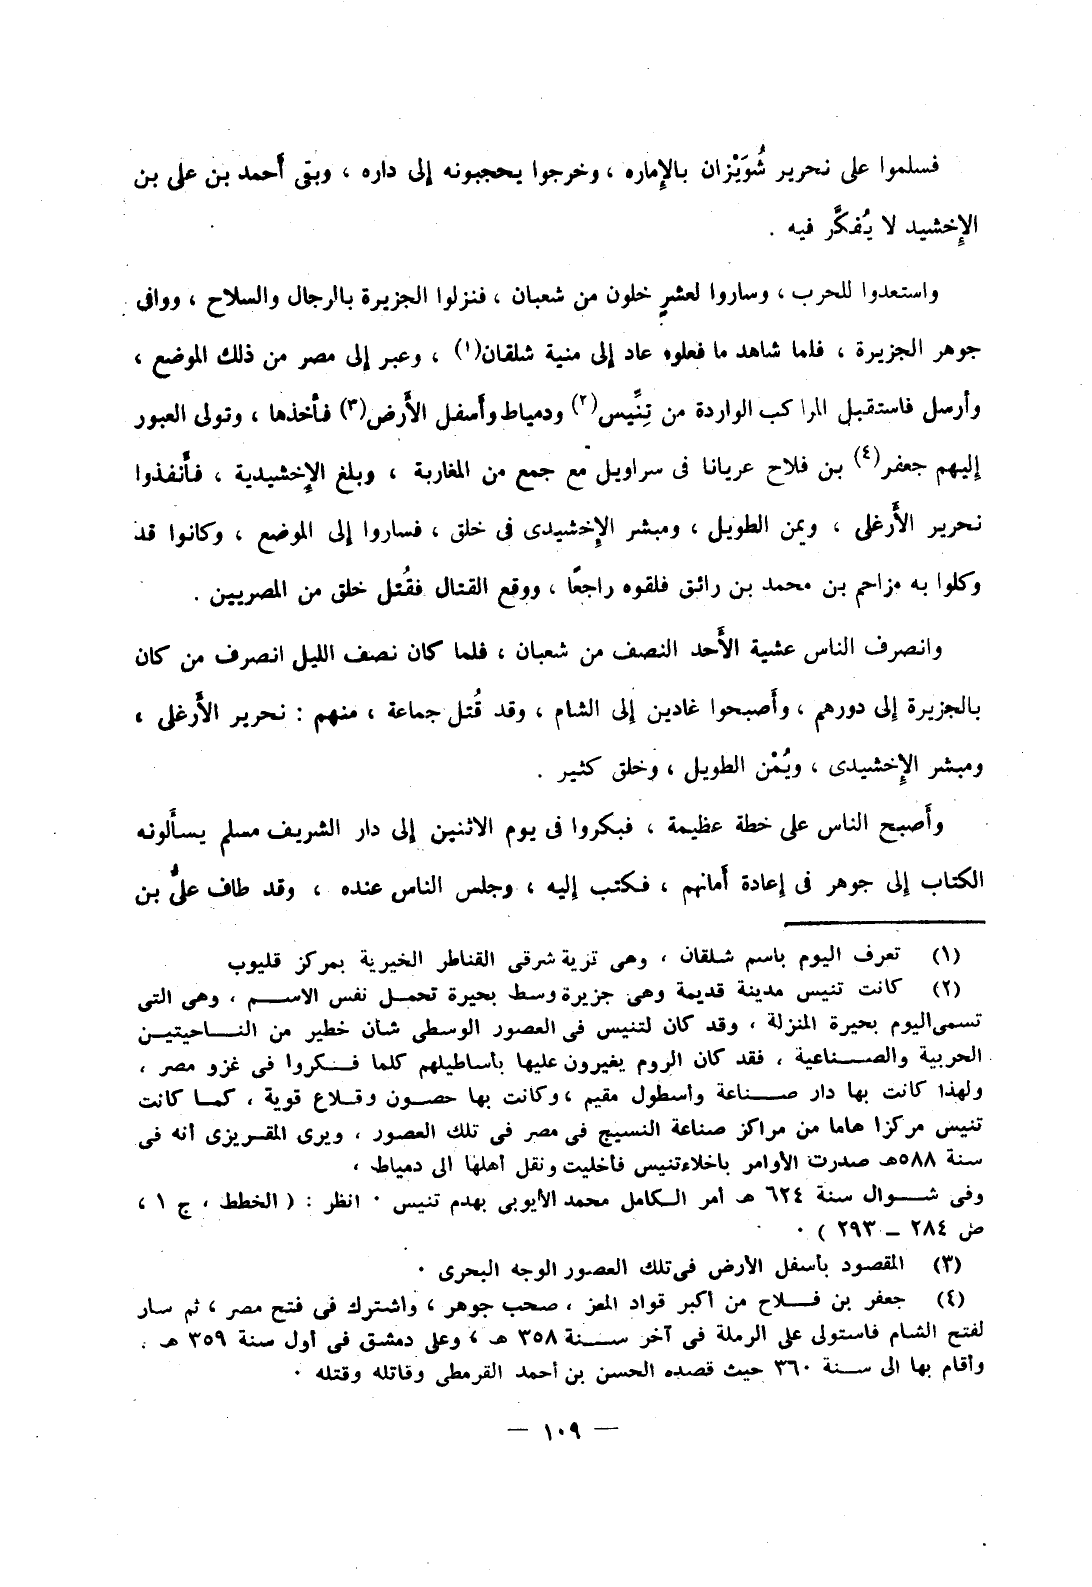 فسلموا على نحرير شُوَيْزان بالإماره ، وخرجوا يحجبونه إلى داره ، وبقى أحمد بن على بن
الإخشيد لا يُفكَّر فيه .
واستعدوا للحرب ، وساروا لعشرٍ خلون من شعبان ، فنزلوا الجزيرة بالرجال والسلاح ، ووافى
جوهر الجزيرة ، فلما شاهد ما فعلوه عاد إلى منية شلقان(١) ، وعبر إلى مصر من ذلك الموضع ،
وأرسل فاستقبل المراكب الواردة من تِنِّيس(٢) ودمياط وأسفل الأَرض(٣) فأخذها ، وتولى العبور
إليهم جعفر(٤) بن فلاح عريانا فى سراويل مع جمع من المغاربة ، وبلغ الإخشيدية ، فأَنفذوا
نحرير الأَرغلى ، ويمن الطويل ، ومبشر الإخشيدى فى خلق ، فساروا إلى الموضع ، وكانوا قد
وكلوا به مزاحم بن محمد بن رائق فلقوه راجعًا ، ووقع القتال فقُتل خلق من المصريين .
وانصرف الناس عشية الأَحد النصف من شعبان ، فلما كان نصف الليل انصرف من كان
بالجزيرة إلى دورهم ، وأَصبحوا غادين إلى الشام ، وقد قُتل جماعة ، منهم : نحرير الأَرغلى ،
ومبشر الإخشيدى ، ويُمْن الطويل ، وخلق كثير .
وأَصبح الناس على خطة عظيمة ، فبكروا فى يوم الاثنين إلى دار الشريف مسلم يسأَلونه
الكتاب إلى جوهر فى إعادة أمانهم ، فكتب إليه ، وجلس الناس عنده ، وقد طاف علىُّ بن
(١) تعرف اليوم باسم شلقان ، وهى تزية شرقى القناطر الخيرية بمركز قليوب
(٢) كانت تنيس مدينة قديمة وهى جزيرة وسط بحيرة تحمل نفس الاسم ، وهى التى
تسمى اليوم بحيرة المنزلة ، وقد كان لتنيس فى العصور الوسطى شان خطير من الناحيتين
الحربية والصناعية ، فقد كان الروم يغيرون عليها بأساطيلهم كلما فكروا فى غزو مصر ،
ولهذا كانت بها دار صناعة وأسطول مقيم ، وكانت بها حصون وقلاع قوية ، كما كانت
تنيس مركزا هاما من مراكز صناعة النسيج فى مصر فى تلك العصور ، ويرى المقريزى أنه فى
سنة ٥٨٨هـ صدرت الأوامر باخلاء تنيس فأخليت ونقل أهلها الى دمياط ،
وفى شوال سنة ٦٢٤ هـ أمر الكامل محمد الأيوبى بهدم تنيس . انظر : ( الخطط ، ج ١ ،
ص ٢٨٤ – ٢٩٣ ) .
(٣) المقصود بأسفل الأرض فى تلك العصور الوجه البحرى .
(٤) جعفر بن فلاح من أكبر قواد المعز ، صحب جوهر ، واشترك فى فتح مصر ، ثم سار
لفتح الشام فاستولى على الرملة فى آخر سنة ٣٥٨ هـ ، وعلى دمشق فى أول سنة ٣٥٩ هـ .
وأقام بها الى سنة ٣٦٠ حيث قصده الحسن بن أحمد القرمطى وقاتله وقتله .
— ١٠٩ —